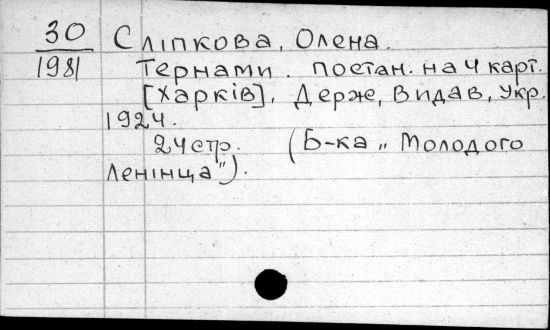 30
1981
Сліпкова, Олена.
Тернами. постан. на 4 карт.
[Харків], Держ, Видав, Укр.
1924.
24 стр. (Б-ка „Молодого
Ленінца").